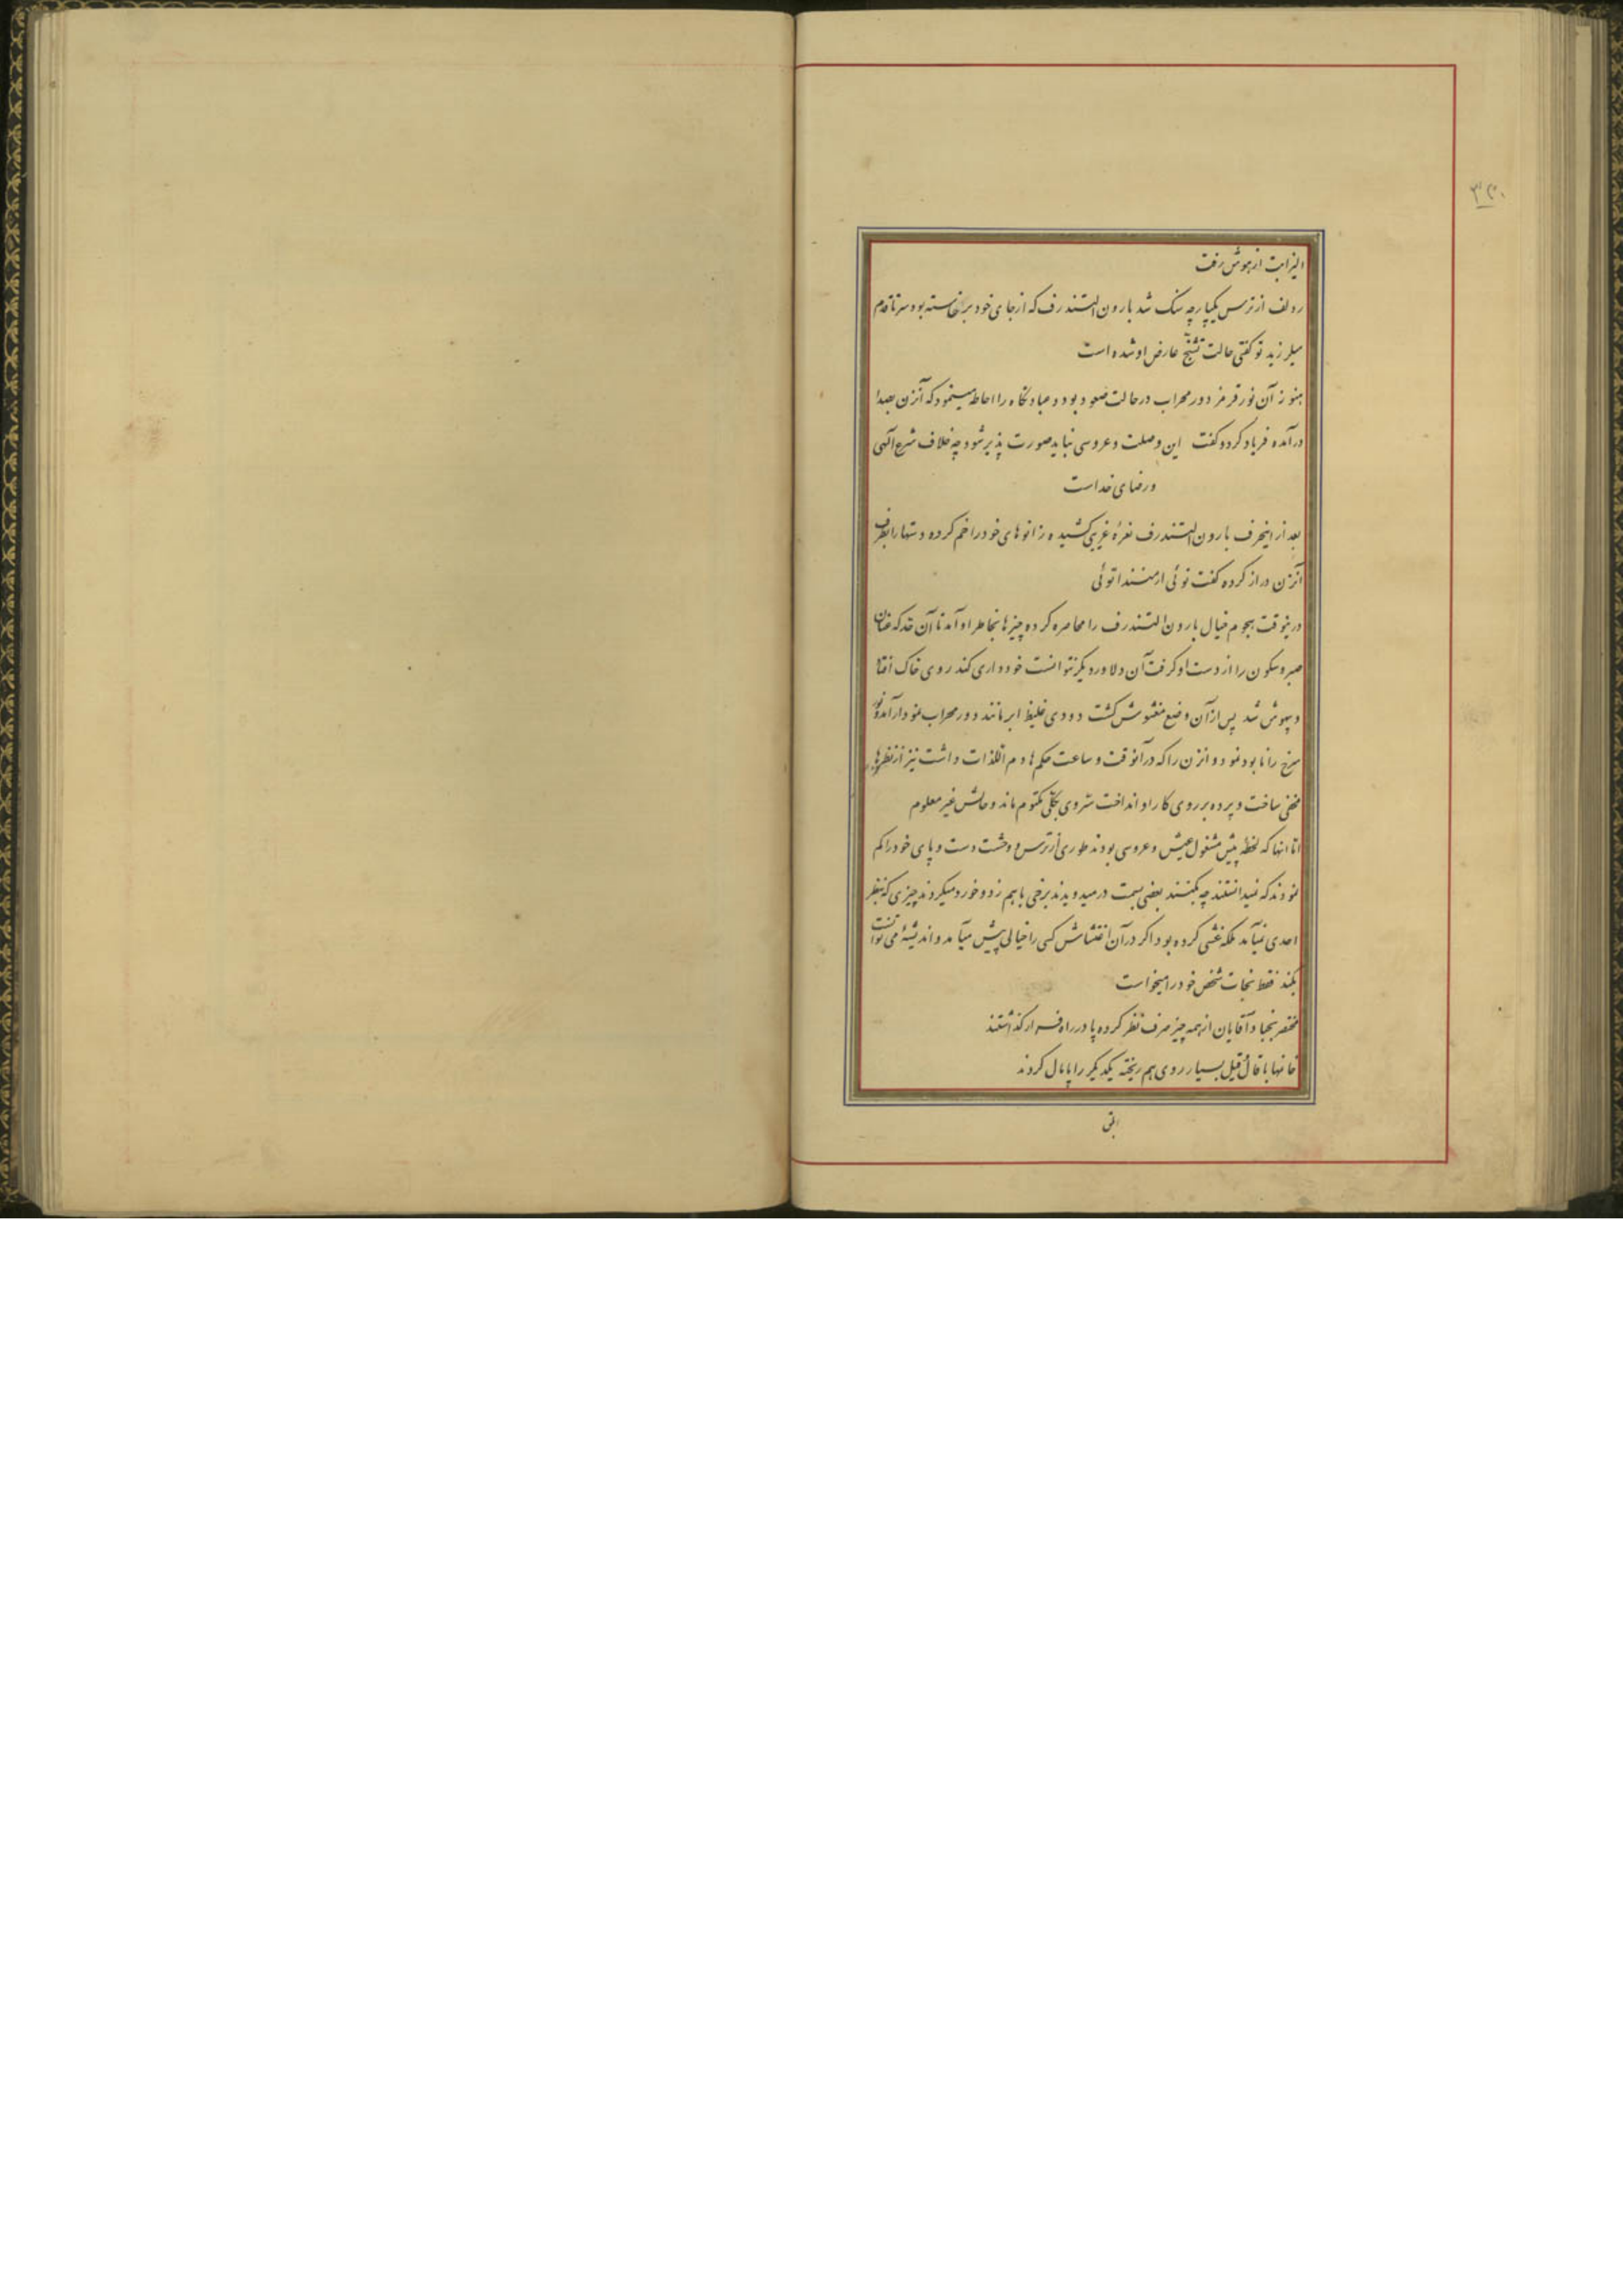 ۳۲۰
الیزابت از هوش رفت
ردلف از ترس یکپارچه سنک شد بارون التندرف که از جای خود برخاسته بود سر تا قدم
میلرزید تو کفتی حالت تشنج عارض او شده است
هنوز آن نور قرمز دور محراب در حالت صعود بود و عبادتکاه را احاطه مینمود که آنزن بصدا
درآمده فریاد کرد و کفت این وصلت و عروسی نباید صورت پذیر شود چه خلاف شرع آلهی
و رضای خداست
بعد از اینحرف بارون التندرف نعرهٔ غریبی کشیده زانوهای خود را خم کرده دستها را بطرف
آنزن دراز کرده کفت توئی ارمنسندا توئی
درینوقت هجوم خیال بارون التندرف را محاصره کرده چیزها بخاطر او آمد تا آن حد که عنان
صبر و سکون را از دست او کرفت آن دلاور دیکر نتوانست خودداری کند روی خاک افتاد
و بیهوش شد پس از آن وضع مغشوش کشت دودی غلیظ ابر مانند دور محراب نمودار آمد و نور
سرخ را نابود نمود و انزن را که در آنوقت و ساعت حکم هادم اللذات داشت نیز از نظرها
مخفی ساخت و پرده بر روی کار او انداخت سرّ وی بکلی مکتوم ماند و حالش غیر معلوم
امّا انها که لحظه پیش مشغول عیش و عروسی بودند طوری از ترس و وحشت دست و پای خود را کم
نمودند که نمیدانستند چه بکنند بعضی بسمت در میدویدند برخی با هم زد و خورد میکردند چیزی که بنظر
احدی نمیآمد ملکه غشی کرده بود اکر در آن اغتشاش کسی را خیالی پیش میآمد و اندیشهٔ می توانست
بکند فقط نجات شخص خود را میخواست
مختصر نجبا و آقایان از همه چیز صرف نظر کرده پا در راه فرار کذاشتند
خانمها با قال و قیل بسیار روی هم ریخته یکدیکر را پامال کردند